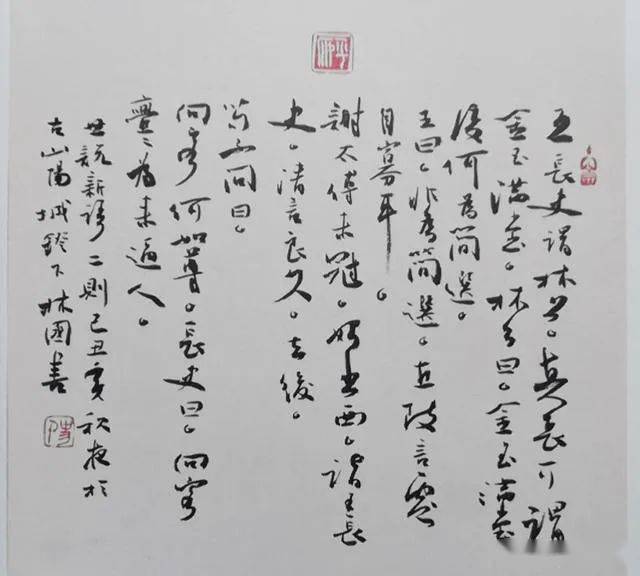 王長史謂林公。真長可謂
金玉滿堂。林公曰。金玉滿堂
復何為簡選。
王曰。非為簡選。直致言處
自寡耳。
謝太傅未冠。始出西。詣王長
史。清言良久。去後。
苟子問曰。
向客何如尊。長史曰。向客
亹々為來逼人。
世說新語二則己丑秋夜於
古山陽城鐙下林國善